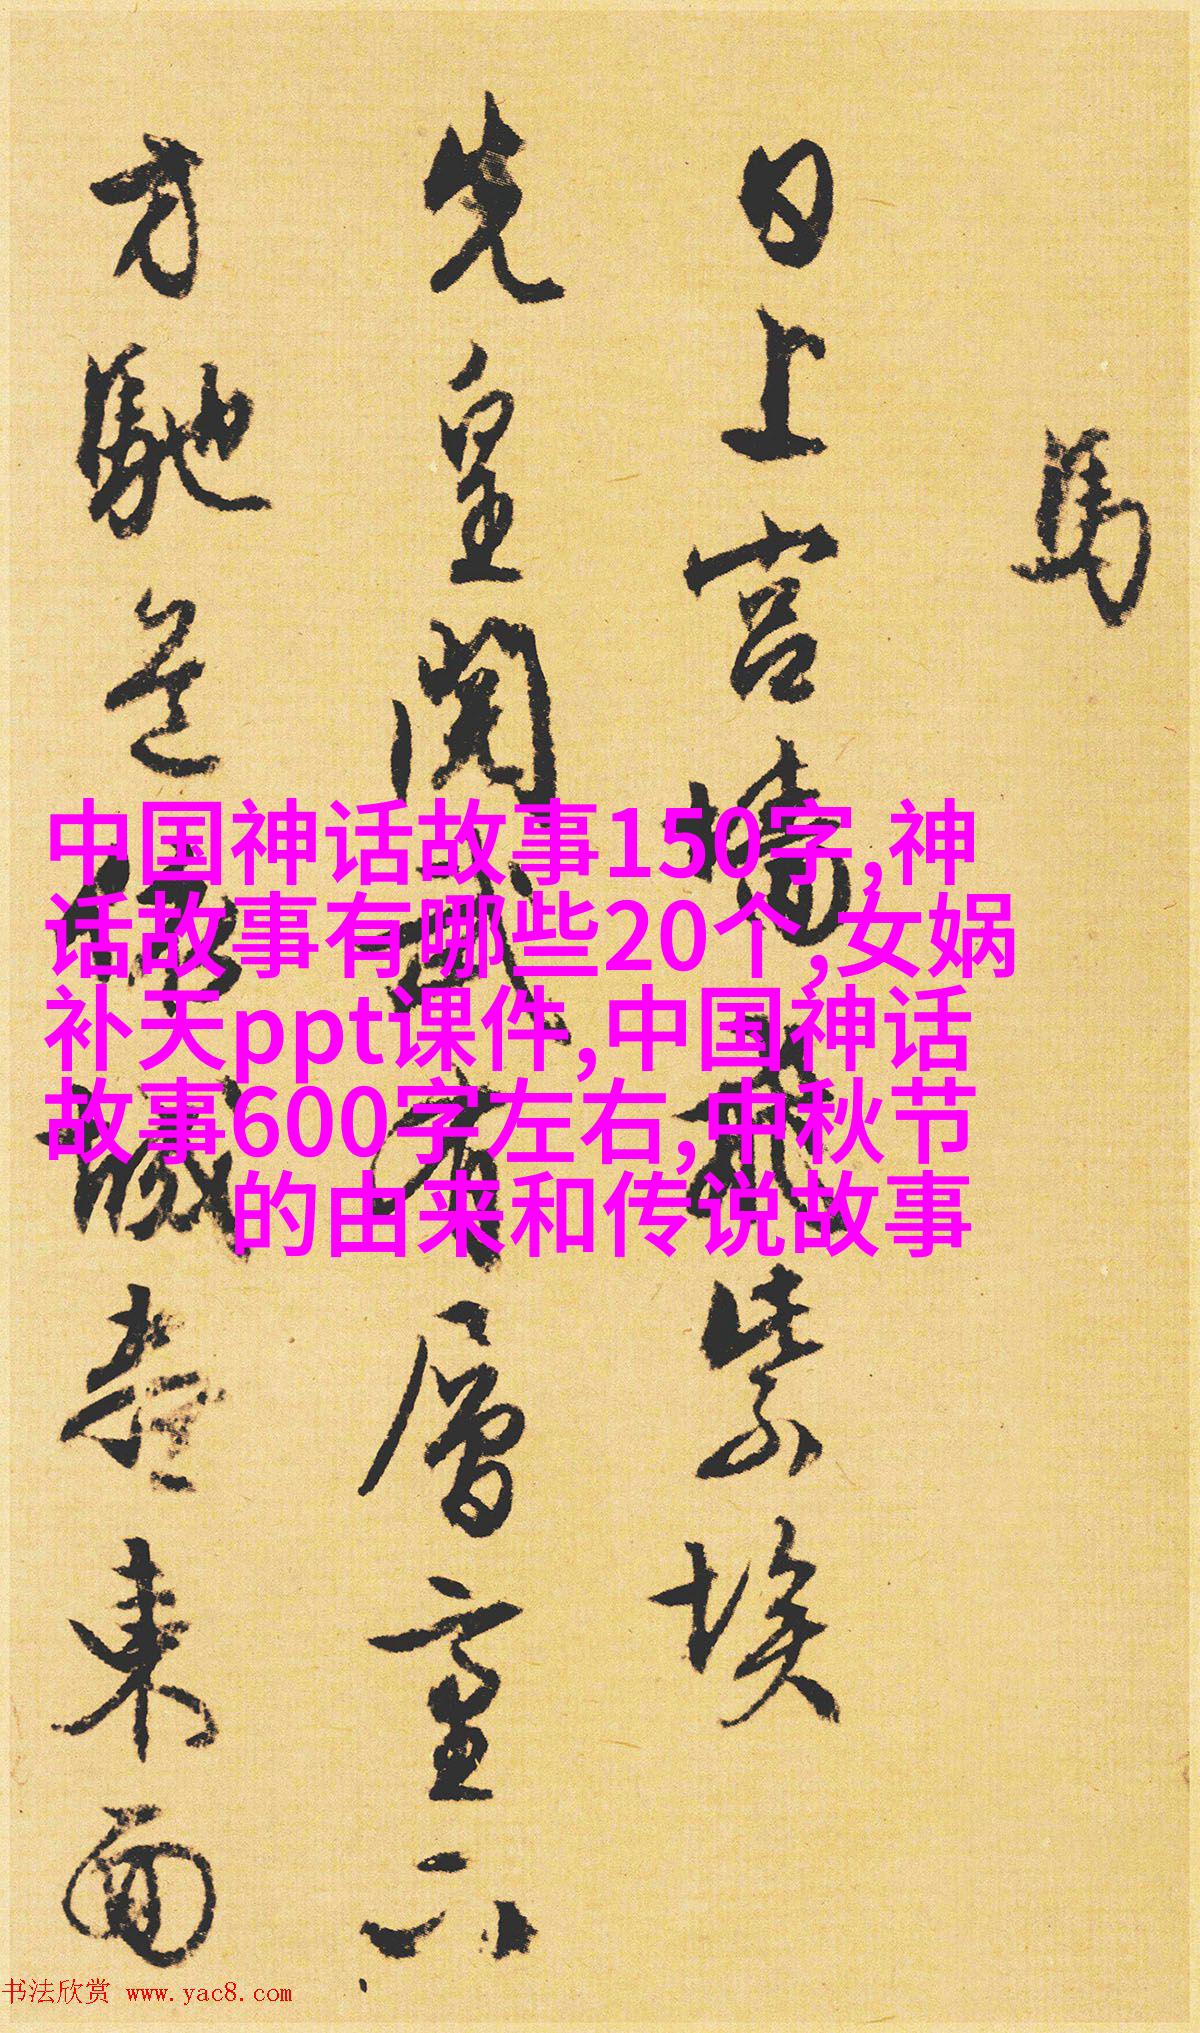 馬
日上宮墙飛紫埃
先皇閱武有層臺下
方馳道依城盡東面
中国神话故事150字,神
话故事有哪些20个,女娲
补天ppt课件,中国神话
故事600字左右,中秋节
的由来和传说故事
书法欣赏 www.yac8.com